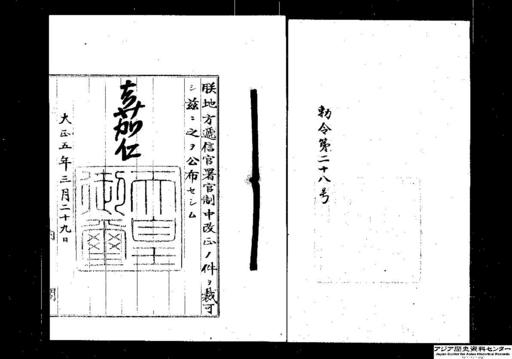 勅令第二十八号
朕地方逓信官署官制中改正ノ件ヲ裁可
シ茲ニ之ヲ公布セシム
嘉仁
天皇
御璽
大正五年三月二十九日
アジア歴史資料センター
Japan Center for Asian Historical Records